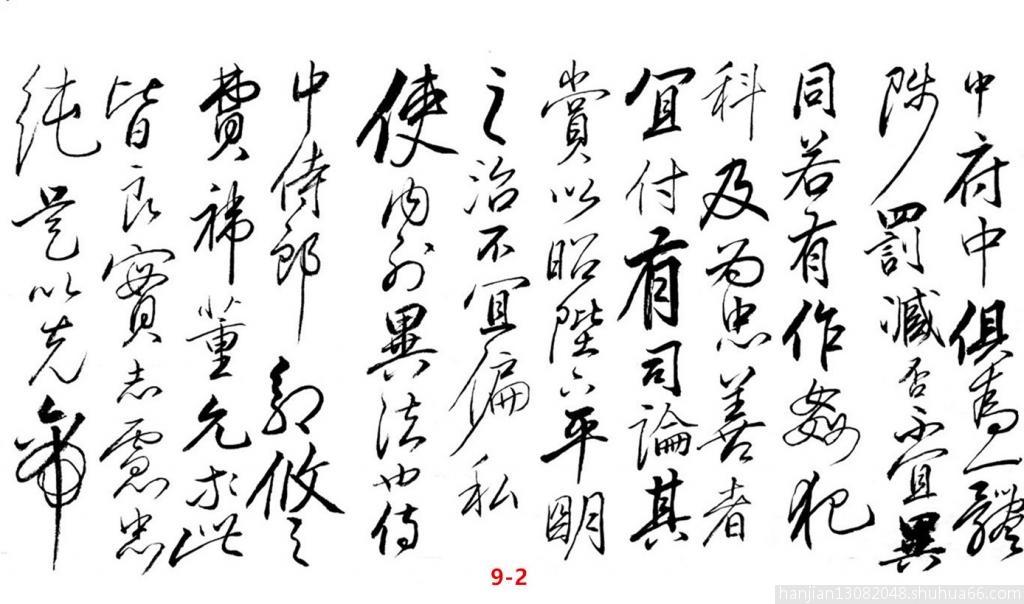 中府中俱為一體
陟罰臧否不宜異
同若有作姦犯
科及為忠善者
宜付有司論其
賞以昭陛下平明
之治不宜偏私
使內外異法也侍
中侍郎郭攸之
費禕董允等此
皆良實志慮忠
純是以先帝
9-2
hanjian13082048.shuhua66.com